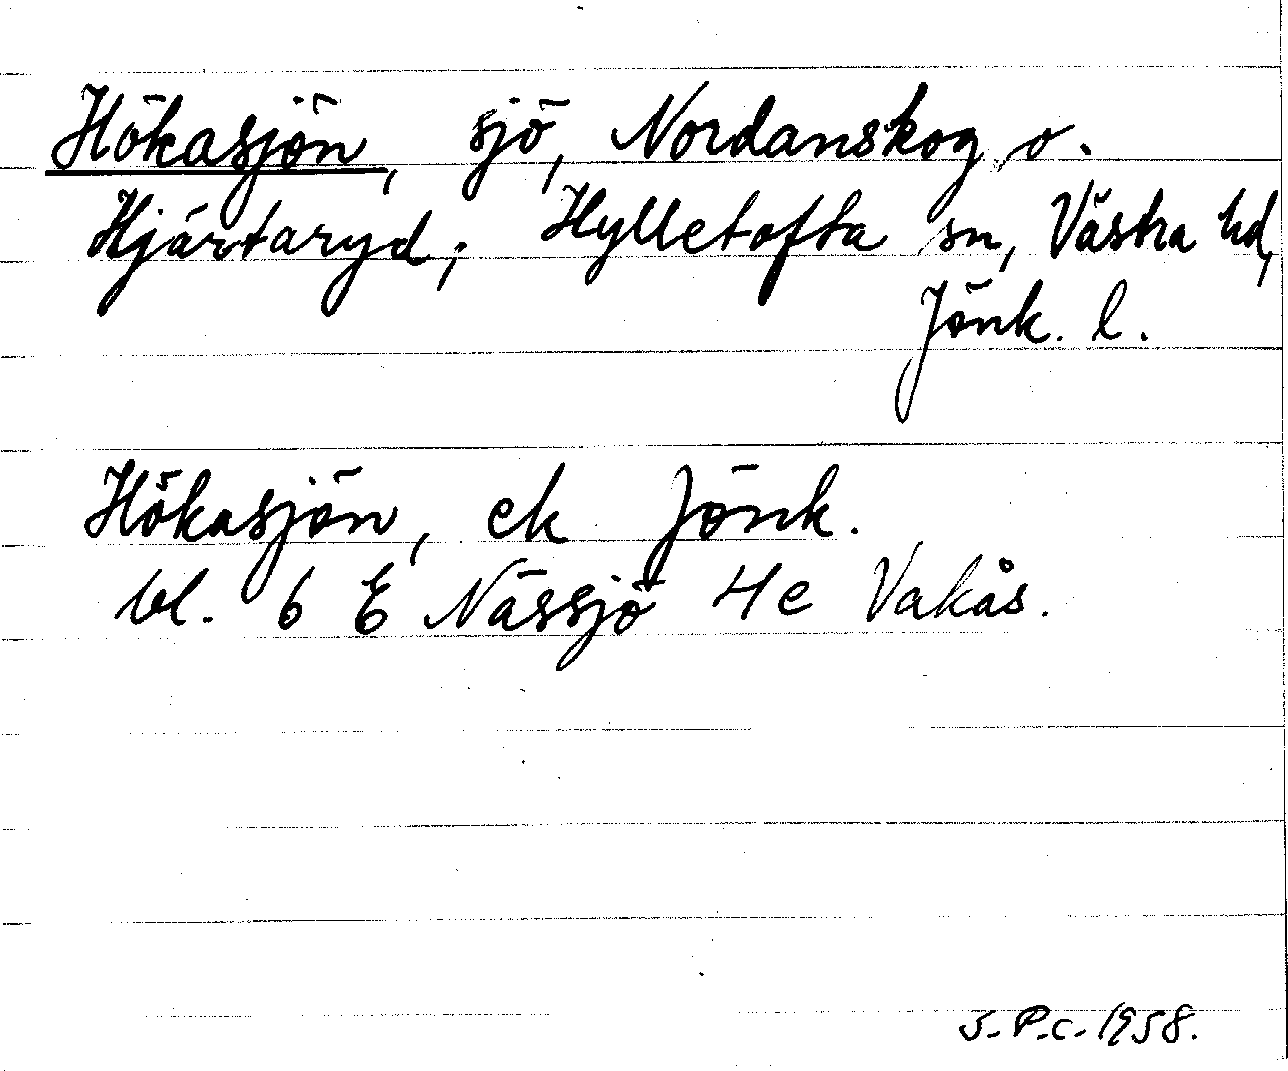 Hökasjön, sjö, Nordanskog o.
Hjärtaryd, Hylletofta sn, Västra hd,
Jönk. l.
Hökasjön, ek Jönk.
bl. 6 E Nässjö 4e Vakås.
S.P.c. 1958.